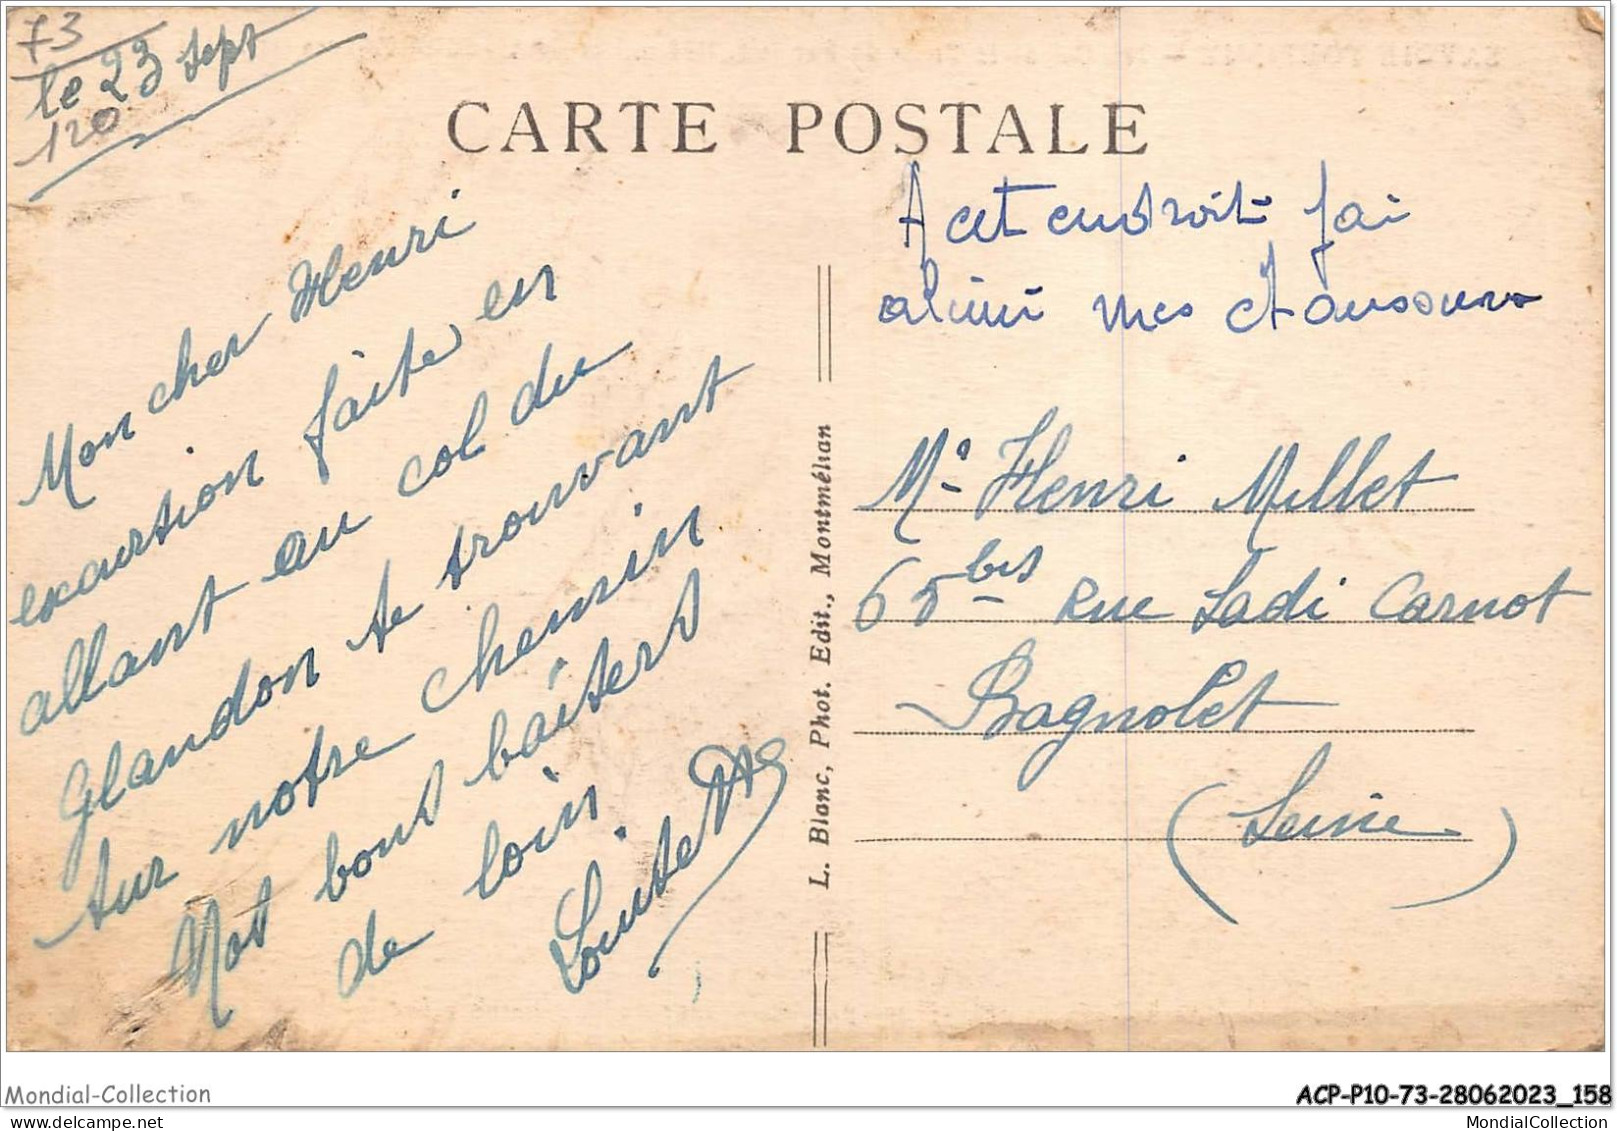 73
le 23 sept
120
CARTE POSTALE
Mon cher Henri
excursion faite en
allant au col du
Glandon te trouvant
sur notre chemin
Nos bons baisers
de loin.
A cet endroit j'ai
abimé mes chaussures
L. Blanc, Phot. Edit., Montmélian
Mr Henri Millet
65 bis Rue Sadi Carnot
Bagnolet
(Seine)
Mondial-Collection
ACP-P10-73-28062023_158
MondialCollection